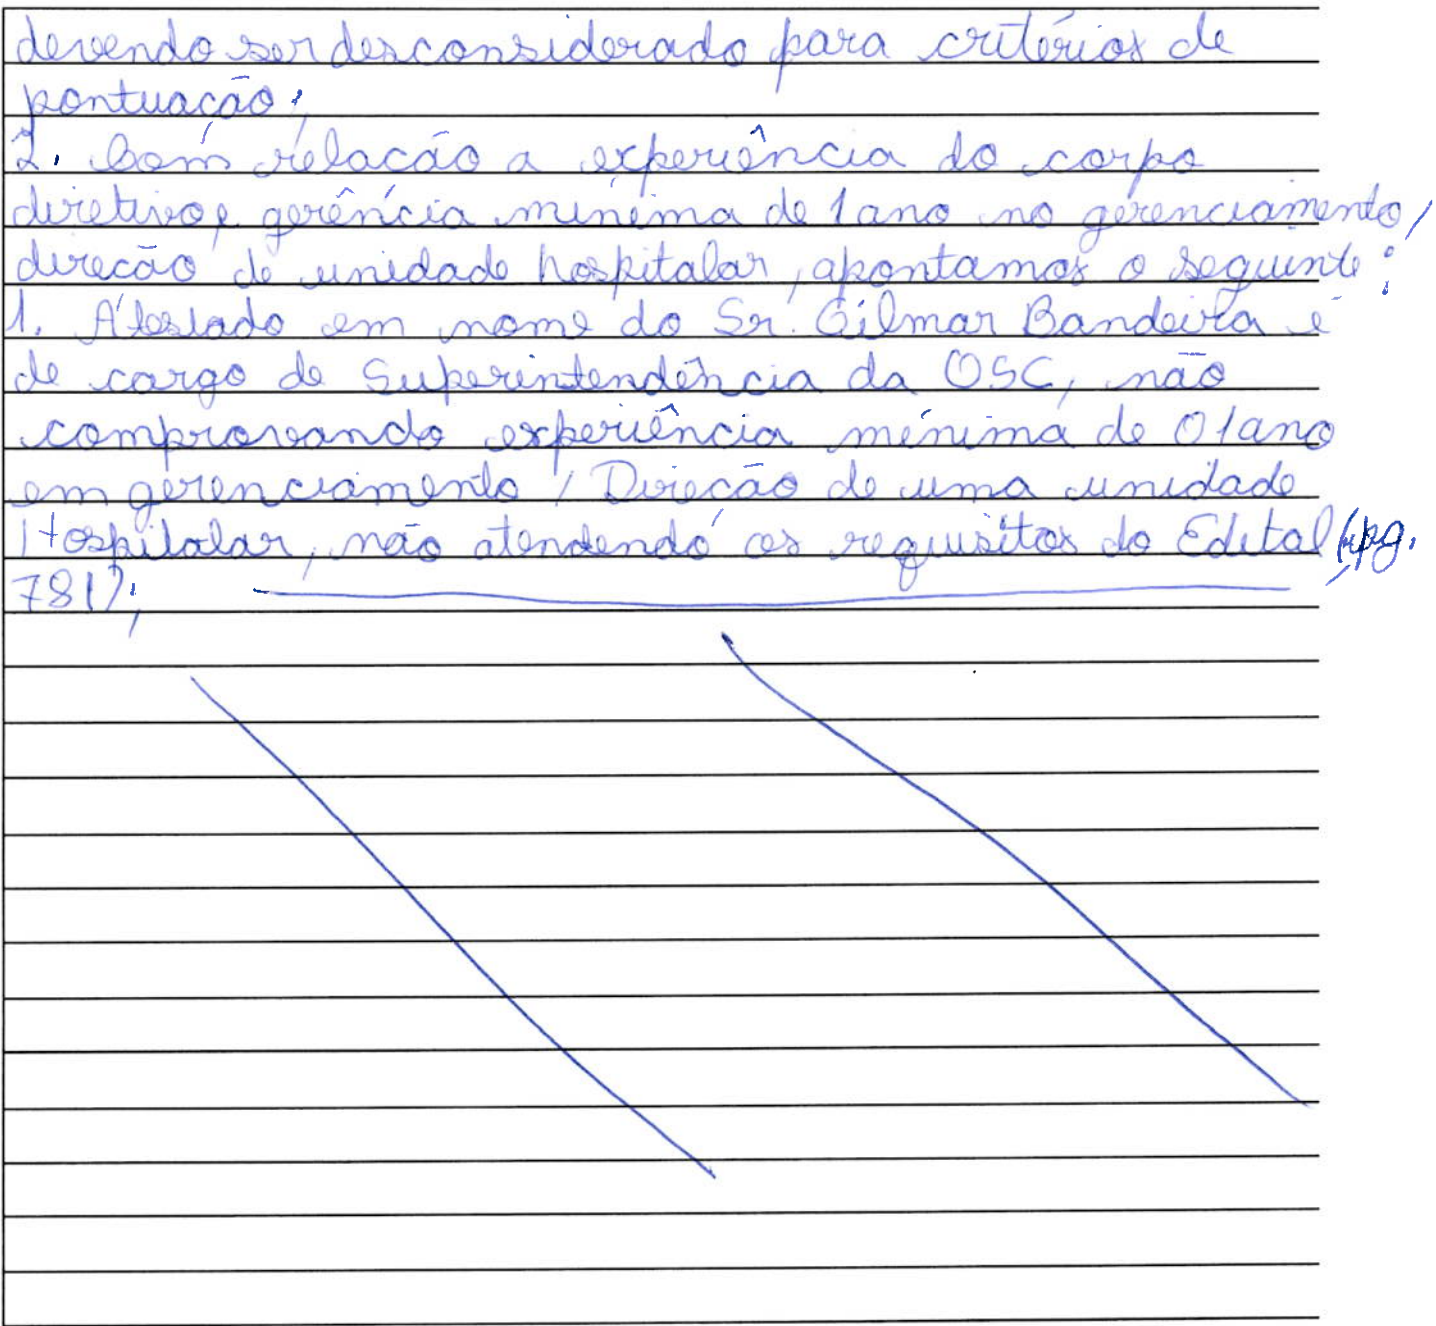 devendo ser desconsiderado para critérios de
pontuação;
2. Com relação a experiência do corpo
diretivo e gerência mínima de 1 ano no gerenciamento/
direção de unidade hospitalar, apontamos o seguinte:
1. Atestado em nome do Sr. Gilmar Bandeira é
de cargo de Superintendência da OSC, não
comprovando experiência mínima de 01 ano
em gerenciamento / Direção de uma unidade
Hospitalar, não atendendo os requisitos do Edital (pg.
781);